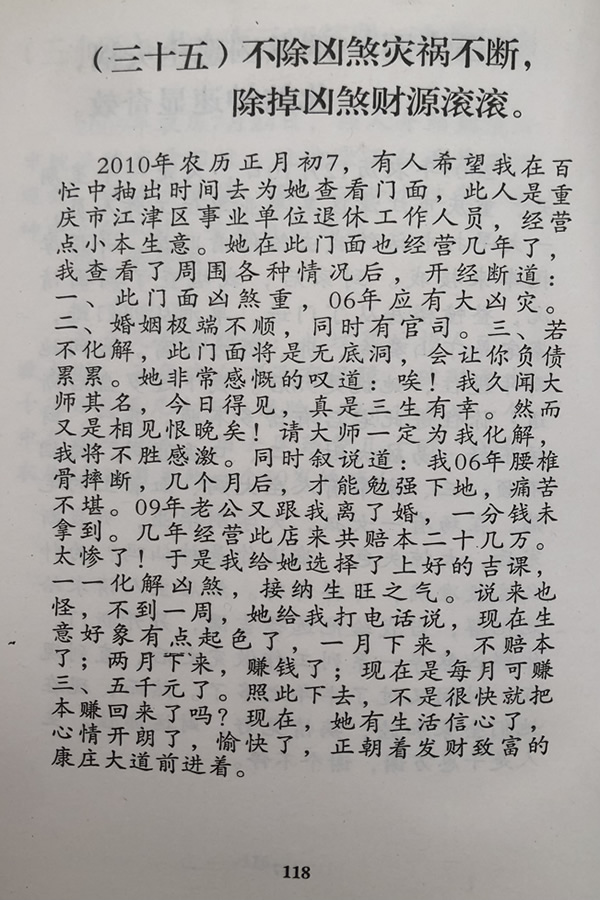 （三十五）不除凶煞灾祸不断，
除掉凶煞财源滚滚。
2010年农历正月初7，有人希望我在百
忙中抽出时间去为她查看门面，此人是重
庆市江津区事业单位退休工作人员，经营
点小本生意。她在此门面也经营几年了，
我查看了周围各种情况后，开经断道：
一、此门面凶煞重，06年应有大凶灾。
二、婚姻极端不顺，同时有官司。三、若
不化解，此门面将是无底洞，会让你负债
累累。她非常感慨的叹道：唉！我久闻大
师其名，今日得见，真是三生有幸。然而
又是相见恨晚矣！请大师一定为我化解，
我将不胜感激。同时叙说道：我06年腰椎
骨摔断，几个月后，才能勉强下地，痛苦
不堪。09年老公又跟我离了婚，一分钱未
拿到。几年经营此店来共赔本二十几万。
太惨了！于是我给她选择了上好的吉课，
一一化解凶煞，接纳生旺之气。说来也
怪，不到一周，她给我打电话说，现在生
意好象有点起色了，一月下来，不赔本
了；两月下来，赚钱了；现在是每月可赚
三、五千元了。照此下去，不是很快就把
本赚回来了吗？现在，她有生活信心了，
心情开朗了，愉快了，正朝着发财致富的
康庄大道前进着。
118